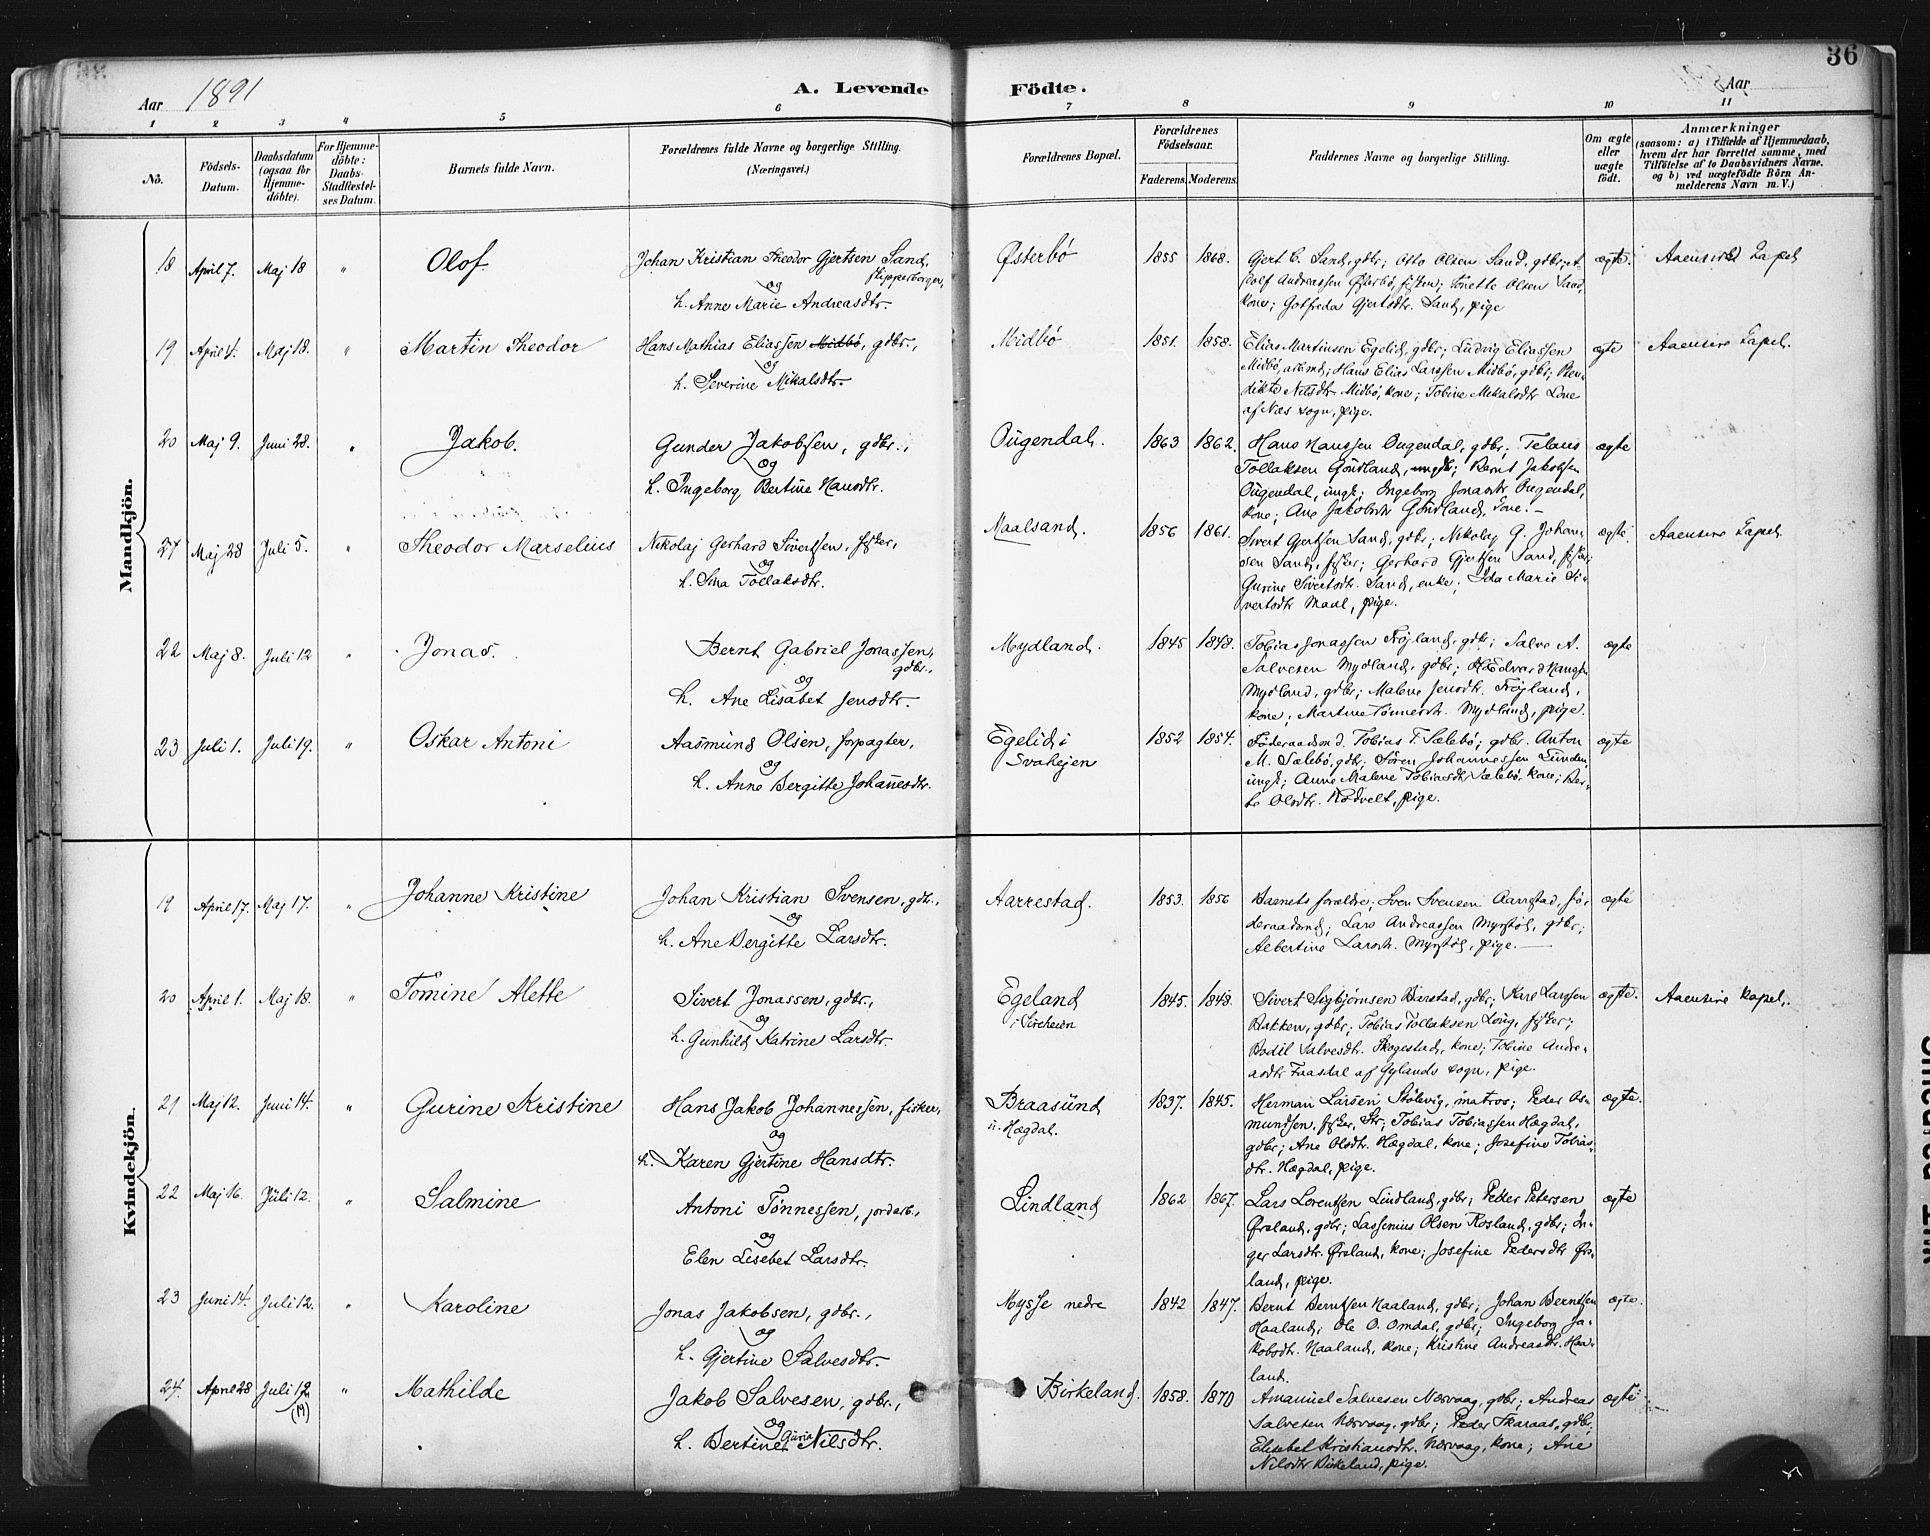 36
Aar 1891
A. Levende Fødte.
Aar
1 2 3 4 5 6 7 8 9 10 11
No.
Fødsels-Datum.
Daabsdatum (ogsaa for Hjemmedøbte).
For Hjemmedøbte: Daabs-Stadfæstelses Datum.
Barnets fulde Navn.
Forældrenes fulde Navne og borgerlige Stilling. (Næringsvei.)
Forældrenes Bopæl.
Forældrenes Fødselsaar.
Faderens. Moderens.
Faddernes Navne og borgerlige Stilling.
Om ægte eller uægte født.
Anmærkninger
(saasom: a) i Tilfælde af Hjemmedaab,
hvem der har forrettet samme, med
Tilføielse af to Daabsvidners Navne.
og b) ved uægtefødte Børn Anmelderens Navn m. V.)
Mandkjön.
18 April 7. Maj 18 " Olof.
Johan Kristian Theodor Gjertsen Sand,
skipperborger,
og
h. Anne Marie Andreasdtr.
Østerbø 1855 1868.
Gert C. Sand, gdbr; Otto Olsen Sand, gdbr;
Olef Andreassen Østerbø, fisker; Tonette Olsen Sand,
kone; Gotfreda Gjertsdtr. Sand, pige
ægte. Aaensire Kapel
19 April 4. Maj 18. " Martin Theodor
Hans Mathias Eliassen Midbø, gdbr.,
og
h. Severine Mikalsdtr.
Midbø 1851. 1858.
Elias Martinsen Egelid, gdbr; Ludvig Eliassen
Midbø, arbmd; Hans Elias Larssen Midbø, gdbr; Bendikte
Nilsdtr. Midbø, kone; Tobine Mikalsdtr Lone
af Næs sogn, pige.
ægte Aaensire Kapel.
20 Maj 9. Juni 28. " Jakob.
Gunder Jakobsen, gdbr.,
og
h. Ingeborg Bertine Hansdtr.
Ougendal. 1863 1862.
Hans Hanssen Ougendal, gdbr; Telaus
Tollaksen Gursland, ungk; Bernt Jakobsen
Ougendal, ungk; Ingeborg Jonasdtr. Ougendal,
kone; Ane Jakobsdtr
ægte
21 Maj 28 Juli 5. " Theodor Marselius
Nikolaj Gerhard Sivertsen, fisker,
og
h. Sina Tollaksdtr.
Maalsand. 1856 1861.
Sivert Gjertsen Sand, gdbr; Nikolay G. Johansen
Sand, fisker; Gerhard Gjertsen Sand, fisker;
Gurine Sivertsdtr. Sand, enke; Ida Marie Sivertsdtr
Maal, pige.
ægte. Aaensire Kapel
22 Maj 8. Juli 12 " Jonas.
Bernt Gabriel Jonassen,
gdbr.,
og
h. Ane Lisabet Jensdtr.
Mydland. 1845 1848.
Tobias Jonassen Frøjland, gdbr; Salve A.
Salvesen Mydland, gdbr; Edvard Hansen
Mydland, gdbr; Malene Jensdtr. Frøjland,
kone; Martine Tønnesdtr. Mydland, pige.
ægte
23 Juli 1. Juli 19. " Oskar Antoni
Aasmund Olsen, forpagter,
og
h. Anne Bergitte Johannesdtr.
Egelid i
Svahejen
1852 1854.
Føderaadsmd. Tobias T. Sælebø; gdbr. Anton
M. Sælebø, gdbr; Søren Johannessen
ungk; Anne Malene Tobiasdtr Sælebø, kone; Berte
Olsdtr. Rødvelt, pige.
ægte
Kvindekjön.
19 April 17. Maj 17. " Johanne Kristine
Johan Kristian Svensen, gdbr.,
og
h. Ane Bergitte Larsdtr.
Aarrestad. 1853. 1856
Barnets forældre; Sven Svensen Aarrestad, føderaadsmd;
Lars Andreassen Myrstøl, gdbr;
Albertine Larsdtr. Myrstøl, pige.
ægte
20 April 1. Maj 18. " Tomine Alette
Sivert Jonassen, gdbr.,
og
h. Gunhild Katrine Larsdtr.
Egeland
i Sireheien
1845. 1848.
Sivert Sigbjørnsen Barstad, gdbr; Karl Larssen
Bakken, gdbr; Tobias Tollaksen Loug, fisker;
Bodil Salvesdtr. Skogestad, kone; Tobine Andreasdtr
Faasdal af Gylands sogn, pige.
ægte. Aaensire kapel.
21 Maj 12. Juni 14. " Gurine Kristine
Hans Jakob Johannessen, fisker,
og
h. Karen Gjertine Hansdtr.
Braasund
u. Hægdal.
1837. 1845.
Herman Larsen Stølevig, matros; Peder Osmundsen,
fisker, Str; Tobias Tobiassen Hægdal,
gdbr; Ane Olsdtr. Hægdal, kone; Josefine Tobiasdtr.
Hægdal, pige.
ægte.
22 Maj 16. Juli 12. " Salmine
Antoni Tønnessen, jordarb.,
og
Elen Lisebet Larsdtr.
Lindland 1862 1867.
Lars Lorentsen Lindland, gdbr; Peder Petersen
Ørsland, gdbr; Lassenius Olsen Rosland, gdbr; Inger
Larsdtr. Ørsland, kone; Josefine Pedersdtr Ørsland,
pige.
ægte
23 Juni 14. Juli 12. " Karoline
Jonas Jakobsen, gdbr.,
og
h. Gjertine Salvesdtr.
Mysse nedre 1842 1847.
Bernt Berntsen Haaland, gdbr; Johan Berntsen
Haaland; Ole O. Omdal, gdbr; Ingeborg Jakobsdtr.
Haaland, kone; Kristine Andreasdtr. Haaland.
ægte.
24. April 28 Juli 12 " Mathilde
(19)
Jakob Salvesen, gdbr.,
og
h. Bertine Guria Nilsdtr.
Birkeland. 1858. 1870
Amanuel Salvesen Næsvaag, gdbr; Andreas
Salvesen Næsvaag, gdbr; Peder Skaraas, gdbr;
Elisebet Kristiansdtr. Næsvaag, kone; Ane
Nilsdtr Birkeland, pige.
ægte